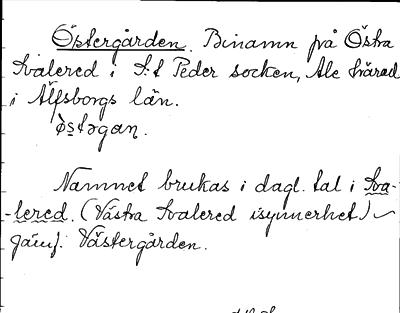 Östergården. Binamn på Östra
Kvalered i S:t Peder socken, Ale härad
i Älfsborgs län.
östəgan.
Namnet brukas i dagl. tal i Kva-
-lered. (Västra Kvalered isynnerhet)
Jämf. Västergården.